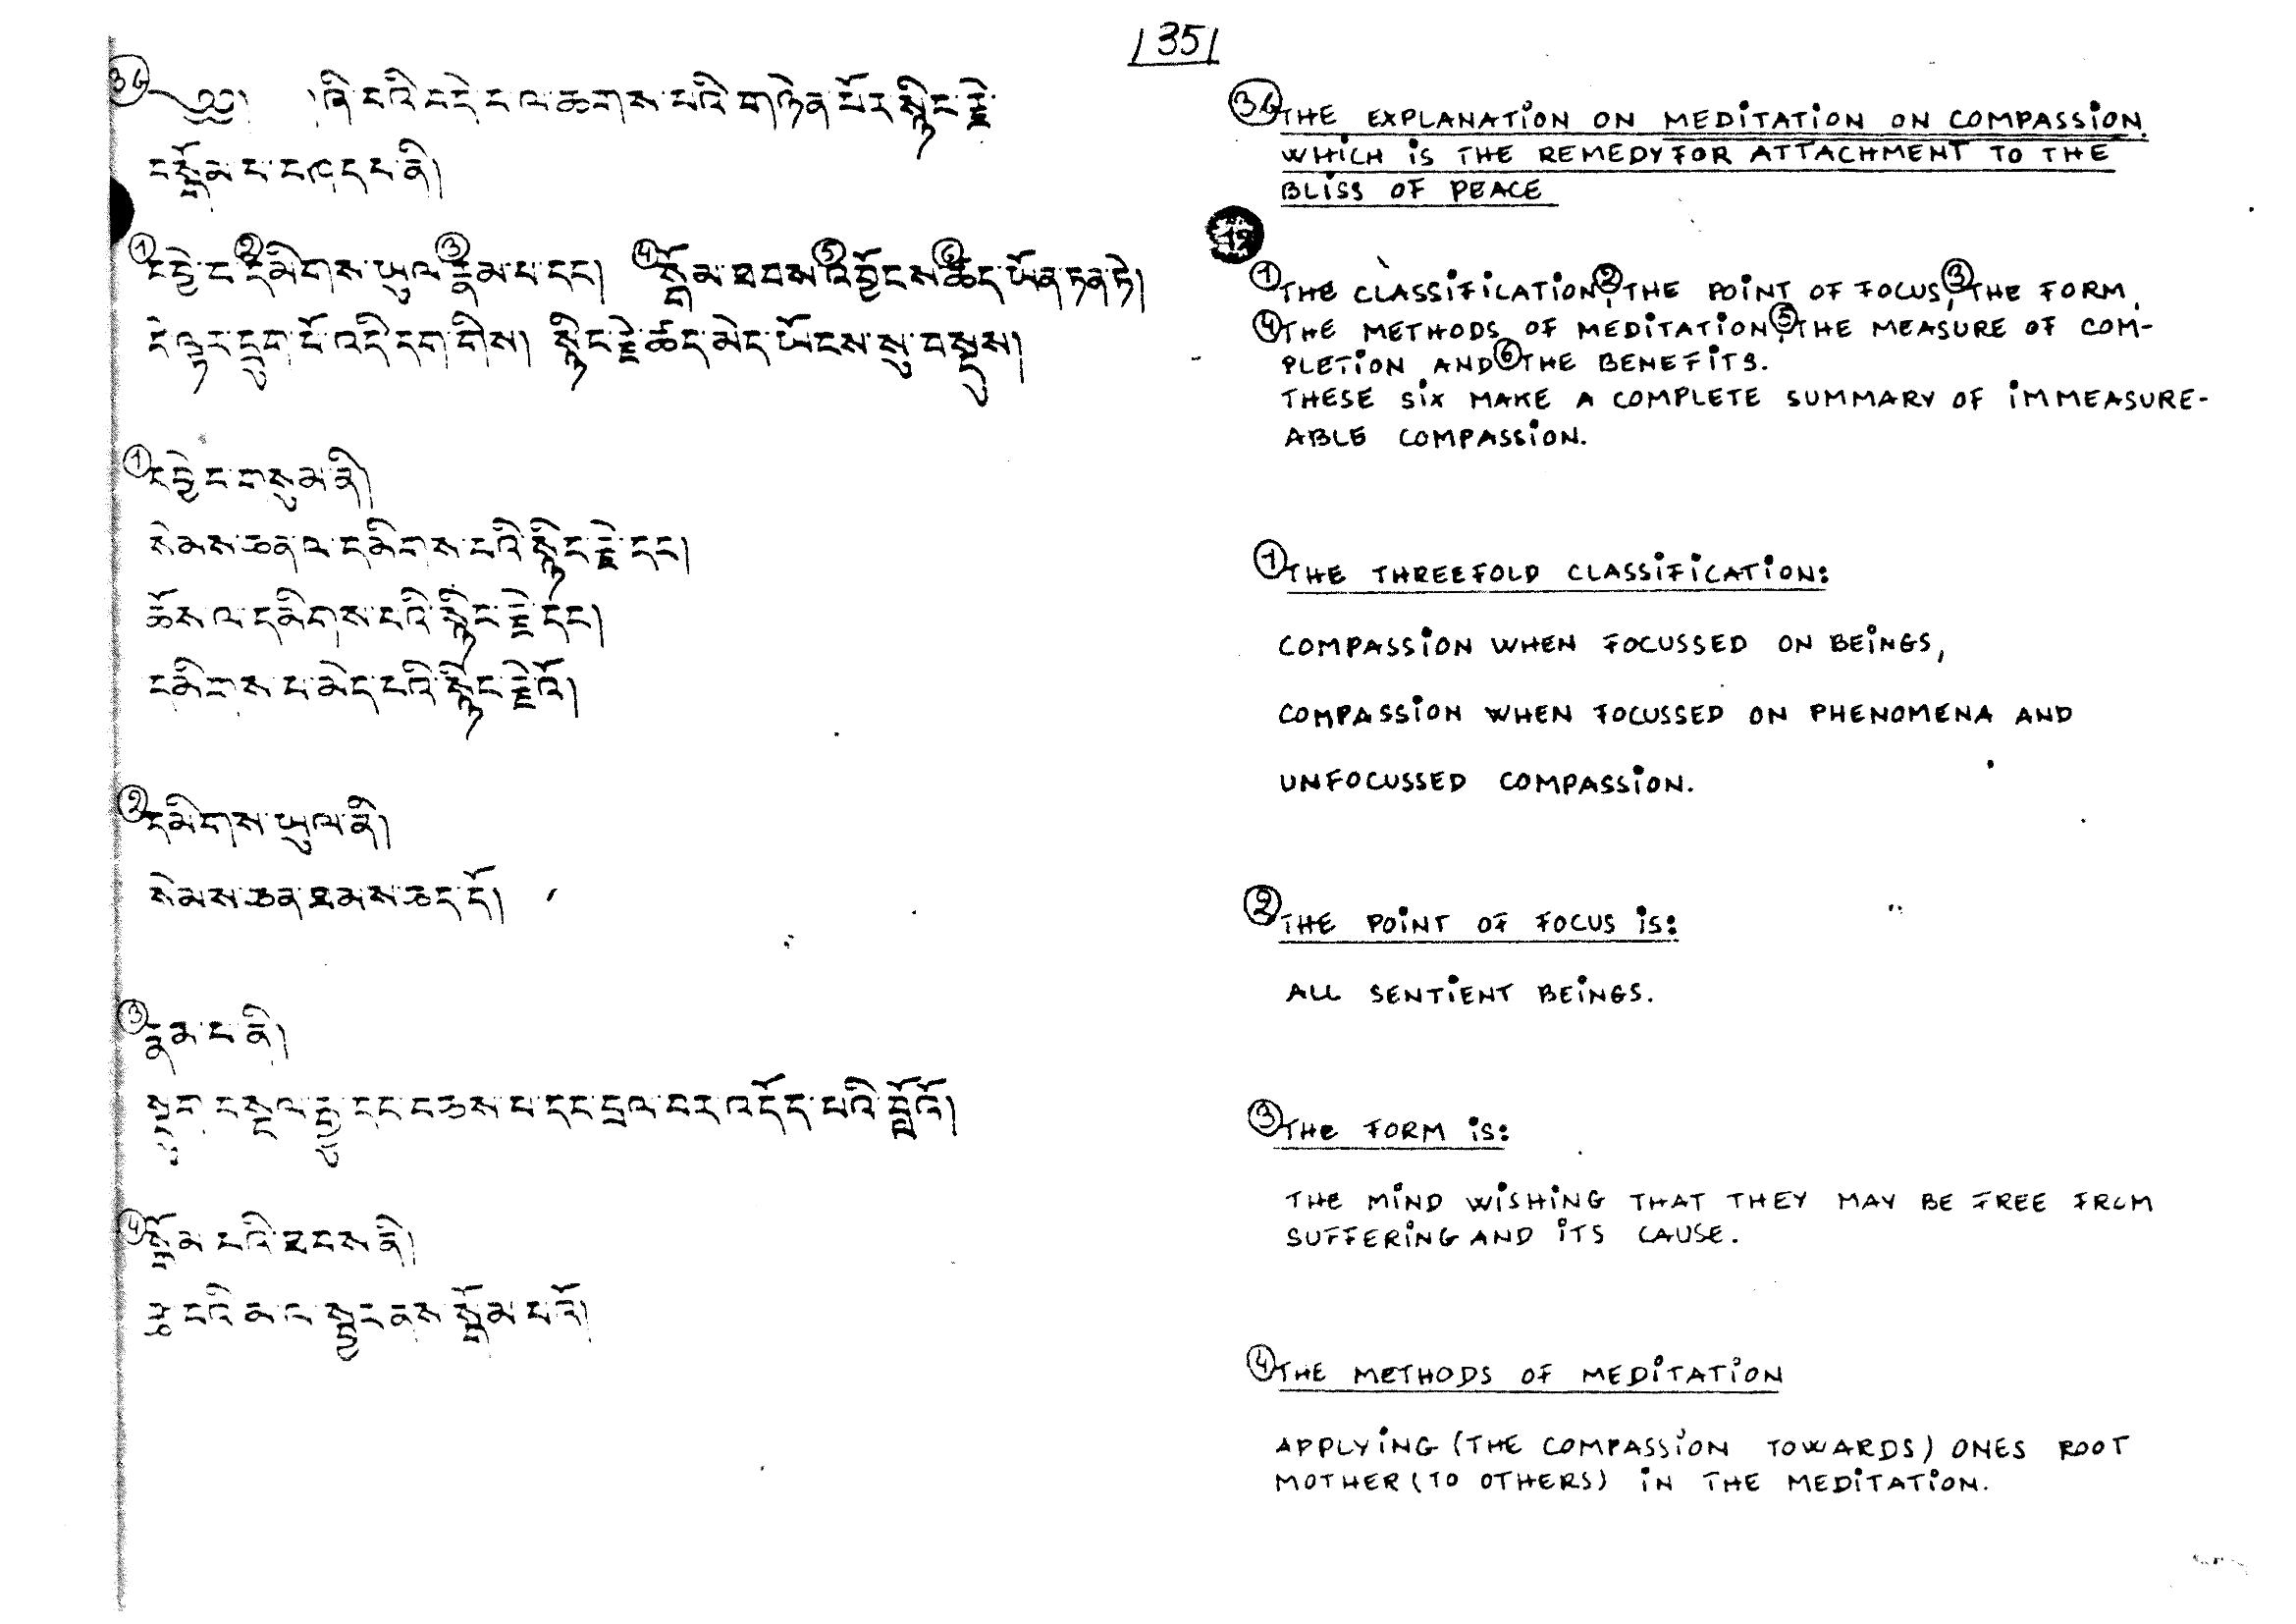 /35/
3G ༄༅། །ཞི་བའི་བདེ་བ་ལ་ཆགས་པའི་གཉེན་པོར་སྙིང་རྗེ་
བསྒོམ་པ་བཤད་པ་ནི།
①དབྱེ་བ་②དམིགས་ཡུལ་③རྣམ་པ་དང། ④སྒོམ་ཐབས་⑤འབྱོངས་ཚད་⑥ཡོན་ཏན་ཏེ།
དེ་ལྟར་དྲུག་པོ་འདི་དག་གིས། སྙིང་རྗེ་ཚད་མེད་ཡོངས་སུ་བསྡུས།
①དབྱེ་བ་གསུམ་ནི།
སེམས་ཅན་ལ་དམིགས་པའི་སྙིང་རྗེ་དང།
ཆོས་ལ་དམིགས་པའི་སྙིང་རྗེ་དང།
དམིགས་པ་མེད་པའི་སྙིང་རྗེའོ།
②དམིགས་ཡུལ་ནི།
སེམས་ཅན་ཐམས་ཅད་དོ།
③རྣམ་པ་ནི།
སྡུག་བསྔལ་རྒྱུ་དང་བཅས་པ་དང་བྲལ་བར་འདོད་པའི་བློའོ།
④སྒོམ་པའི་ཐབས་ནི།
རྩ་བའི་མ་ལ་སྦྱར་ནས་སྒོམ་པའོ།
3G THE EXPLANATION ON MEDITATION ON COMPASSION
WHICH IS THE REMEDY FOR ATTACHMENT TO THE
BLISS OF PEACE
①THE CLASSIFICATION, ②THE POINT OF FOCUS, ③THE FORM,
④THE METHODS OF MEDITATION, ⑤THE MEASURE OF COM-
PLETION AND ⑥THE BENEFITS.
THESE SIX MAKE A COMPLETE SUMMARY OF IMMEASURE-
ABLE COMPASSION.
①THE THREEFOLD CLASSIFICATION:
COMPASSION WHEN FOCUSSED ON BEINGS,
COMPASSION WHEN FOCUSSED ON PHENOMENA AND
UNFOCUSSED COMPASSION.
②THE POINT OF FOCUS IS:
ALL SENTIENT BEINGS.
③THE FORM IS:
THE MIND WISHING THAT THEY MAY BE FREE FROM
SUFFERING AND ITS CAUSE.
④THE METHODS OF MEDITATION
APPLYING (THE COMPASSION TOWARDS) ONES ROOT
MOTHER (TO OTHERS) IN THE MEDITATION.